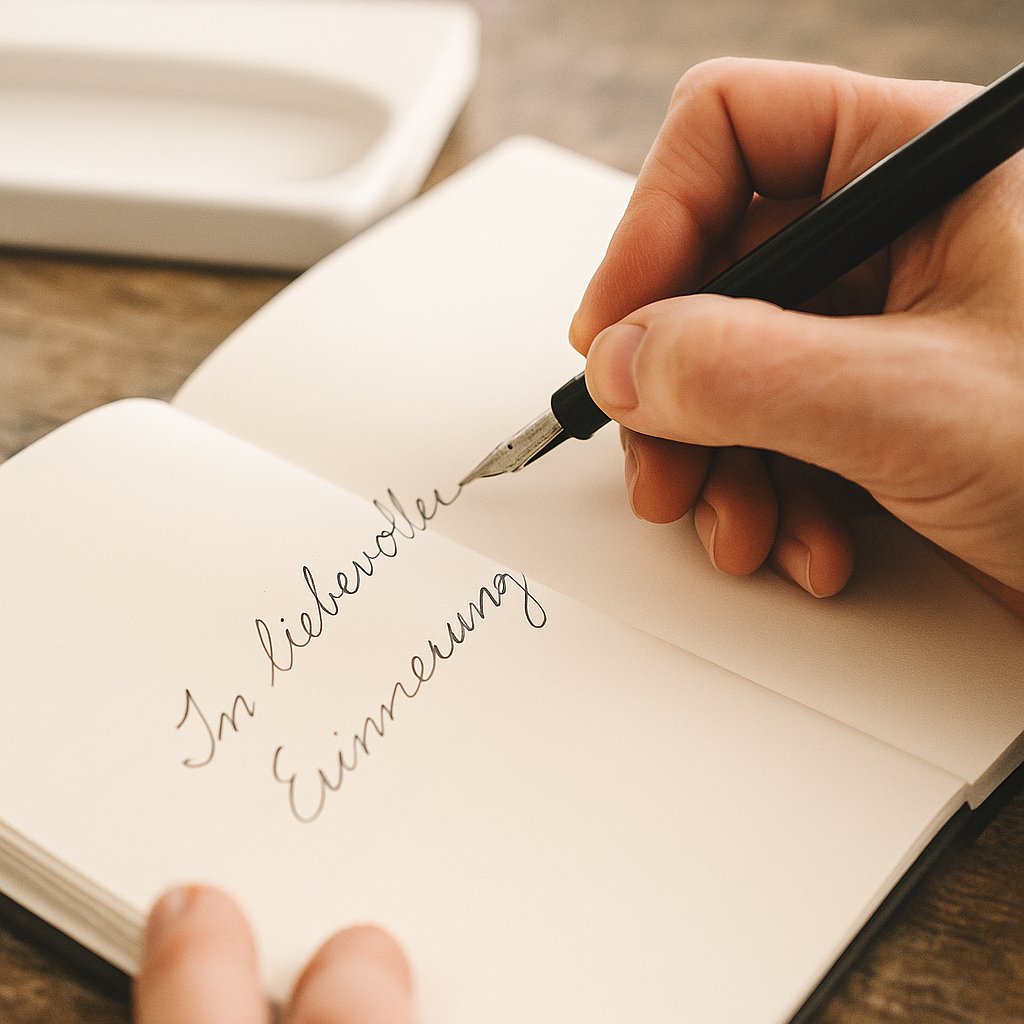 In liebevoller
Erinnerung